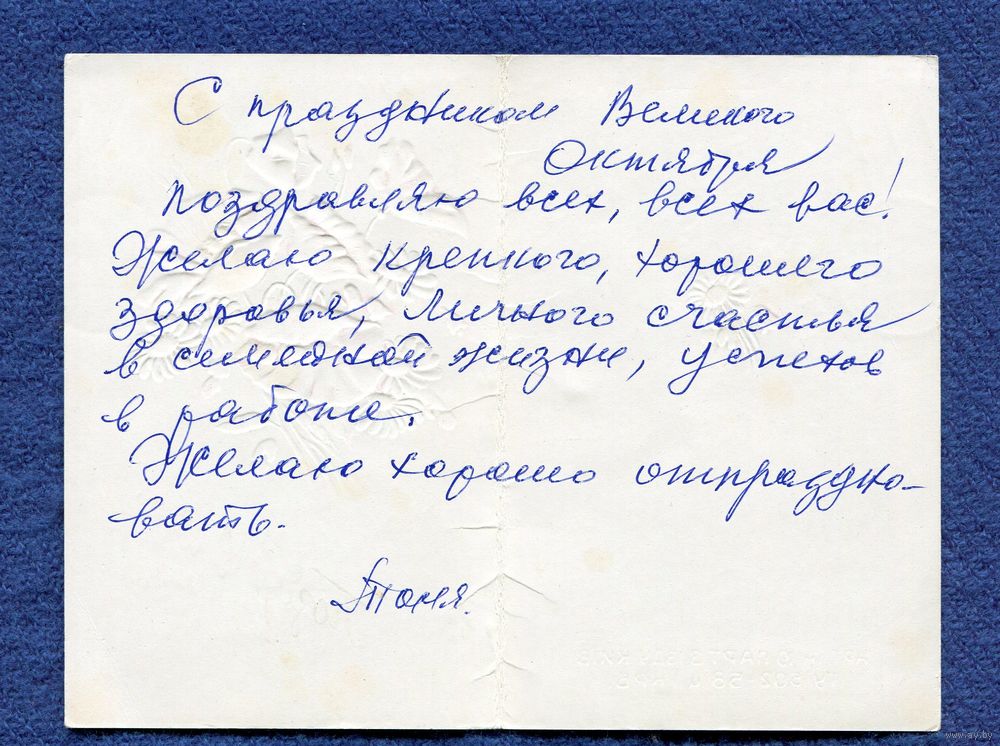 С праздником Великого
Октября
поздравляю всех, всех вас!
Желаю крепкого, хорошего
здоровья, личного счастья
в семейной жизни, успехов
в работе.
Желаю хорошо отпраздно-
вать.
Тоня.
www.ay.by